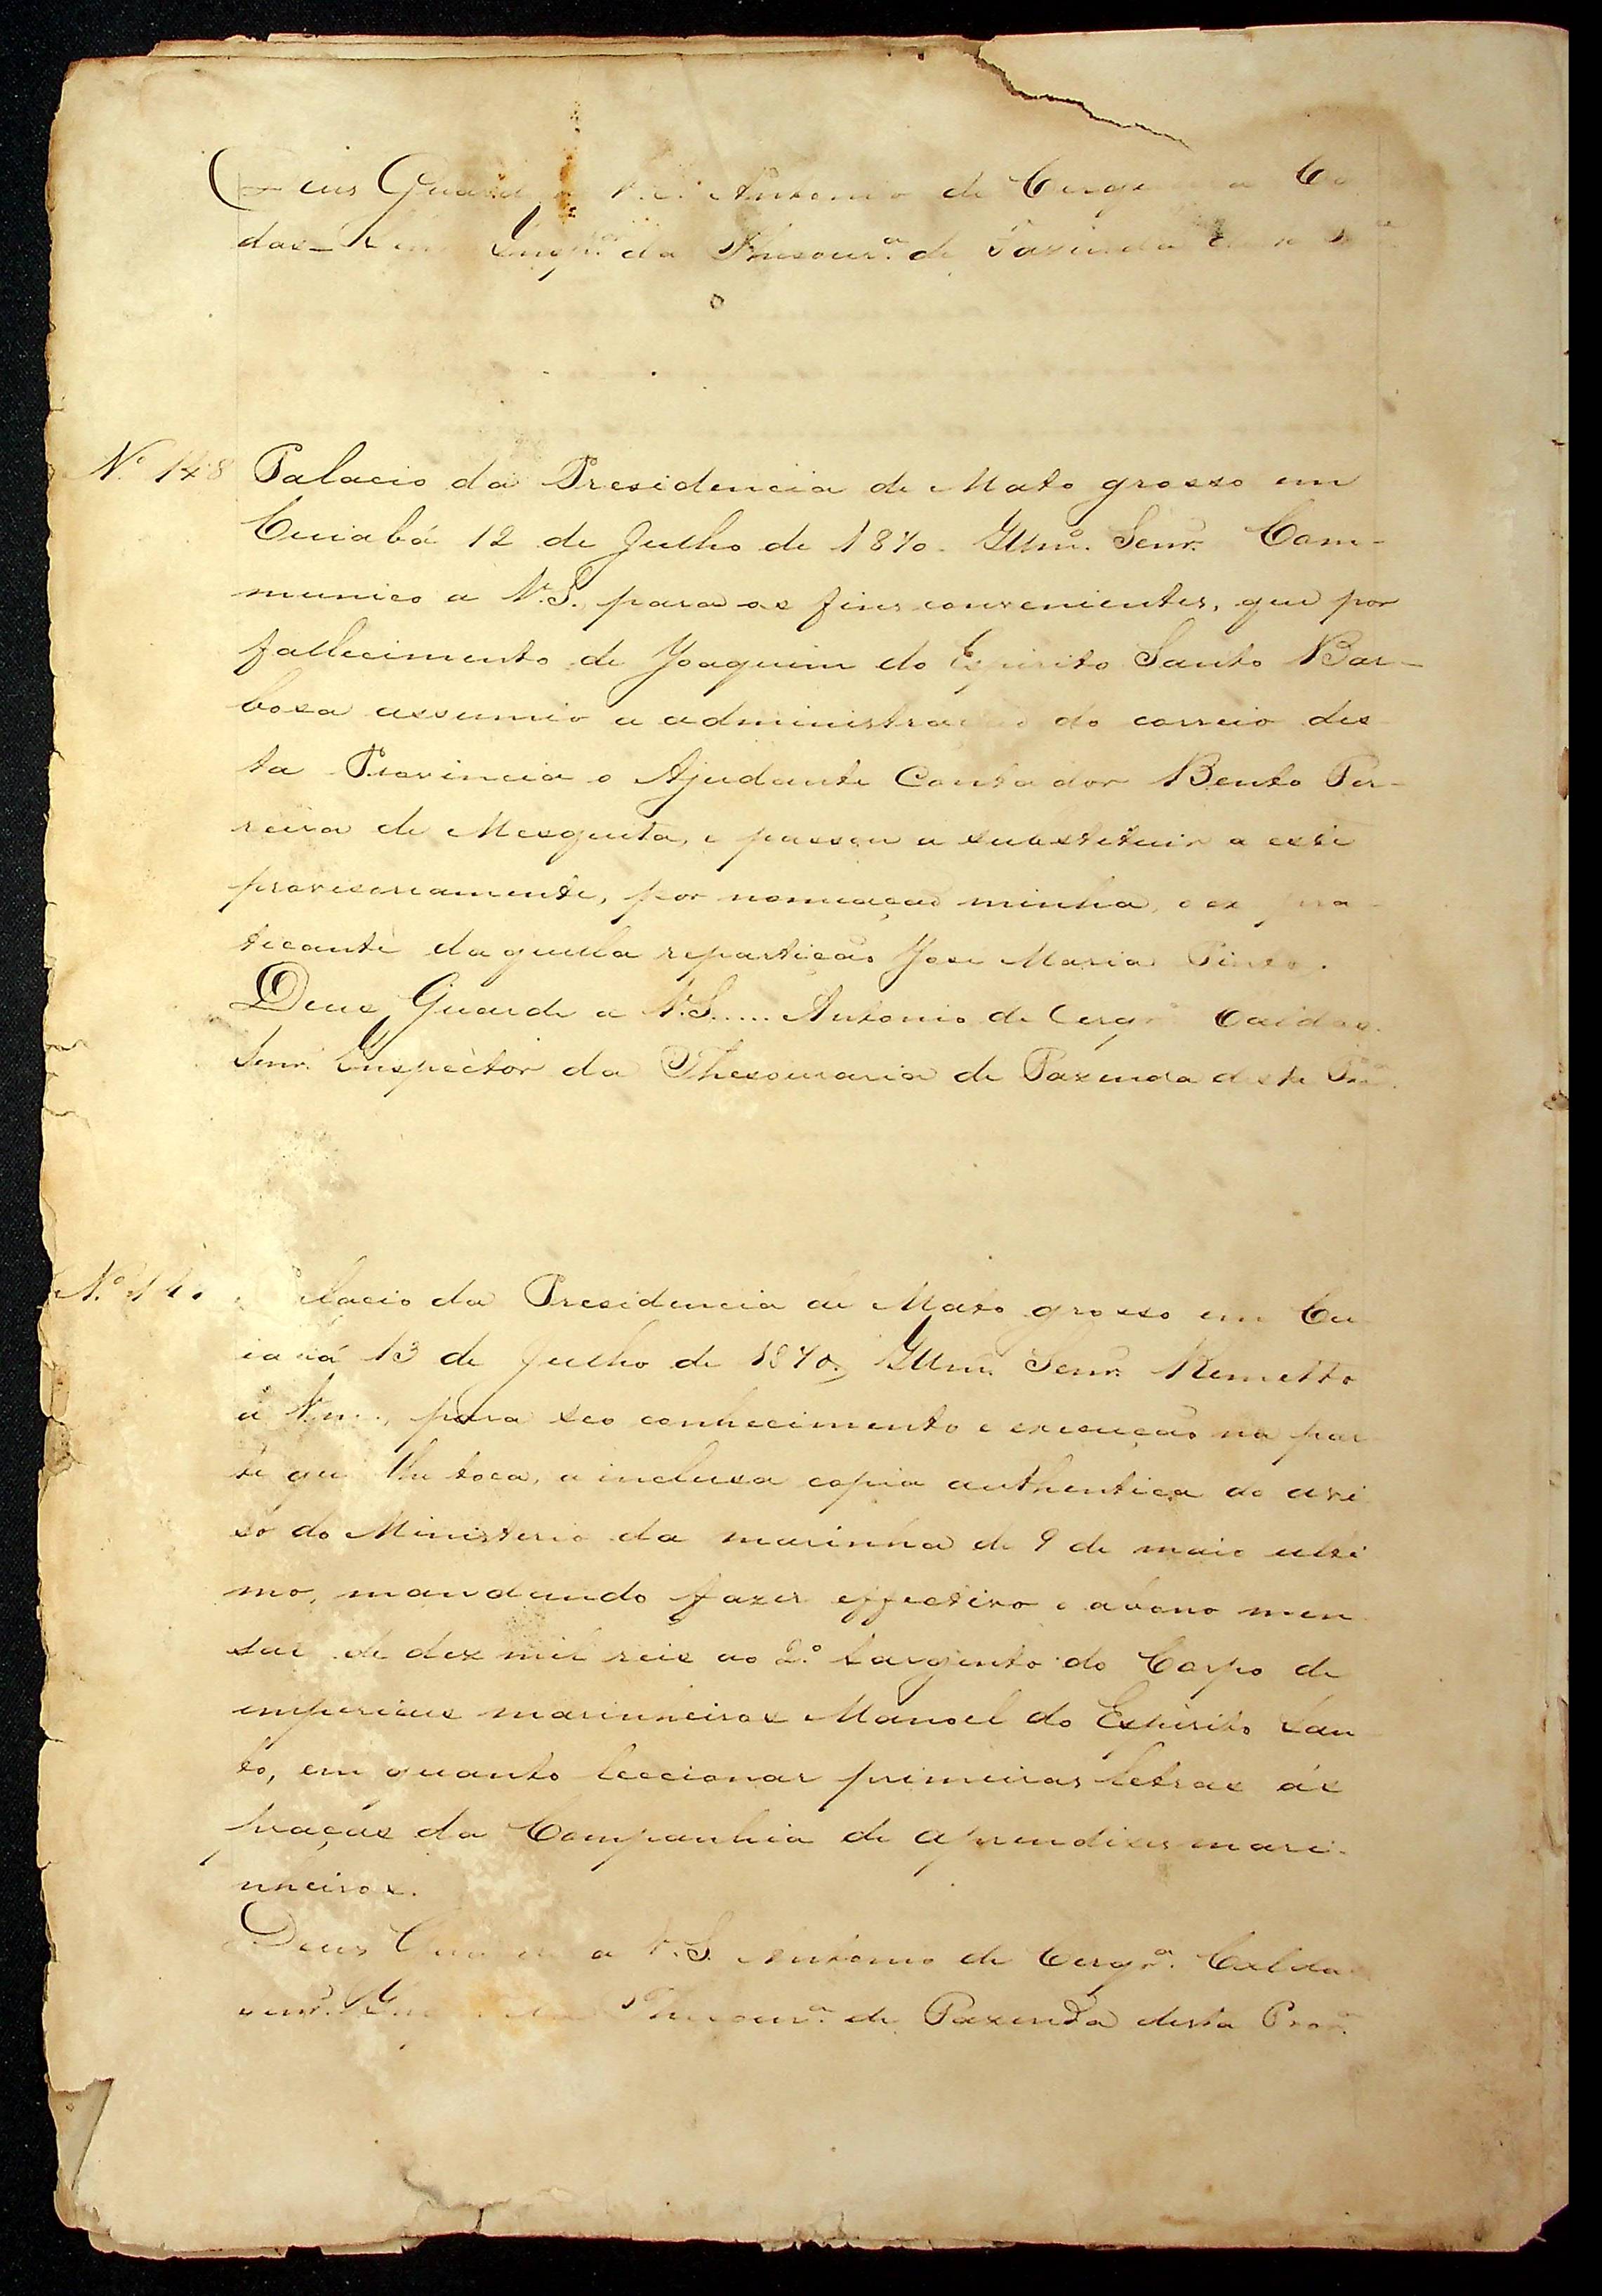 Deus Guard V. Antonio de Cerq Ca
das Snr Insp.or da Thesour.a de Fazenda desta
Nº 148 Palacio da Presidencia de Mato grosso em
Cuiabá 12 de Julho de 1870. Illmº. Senr. Com-
munico a V.S. para os fins convenientes, que por
fallecimento de Joaquim do Espirito Santo Bar-
bosa assumio a administração do correio des
ta Provincia o Ajudante Contador Bento Per-
reira de Mesquita, e passou a substituir a este
provisoriamente, por nomeação minha, o ex pra-
ticante daquella repartição Jose Maria Pinto.
Deus Guarde a V.S..... Antonio de Cerqr.ª Caldas.
Senr. Inspector da Thesouraria de Fazenda desta Proª.
Nº 14 lacio da Presidencia de Mato grosso em Cu
iabá 13 de Julho de 1870. Illmº. Senr. Remetto
á V. para seo conhecimento e execução na par
te que lhe toca, a inclusa copia authentica do avi
so do Ministerio da marinha de 9 de maio ulti
mo, mandando fazer effectivo o abono men
sal de dez mil reis ao 2º Sargento do Corpo de
imperiaes marinheiros Manoel do Espirito San
to, em quanto leccionar primeiras letras ás
praças da Companhia de aprendizes mari-
nheiros.
Deus Guarde a V.S. Antonio de Cerqr.ª Caldas
Senr. In da Thesour.ª de Fazenda desta Proª.